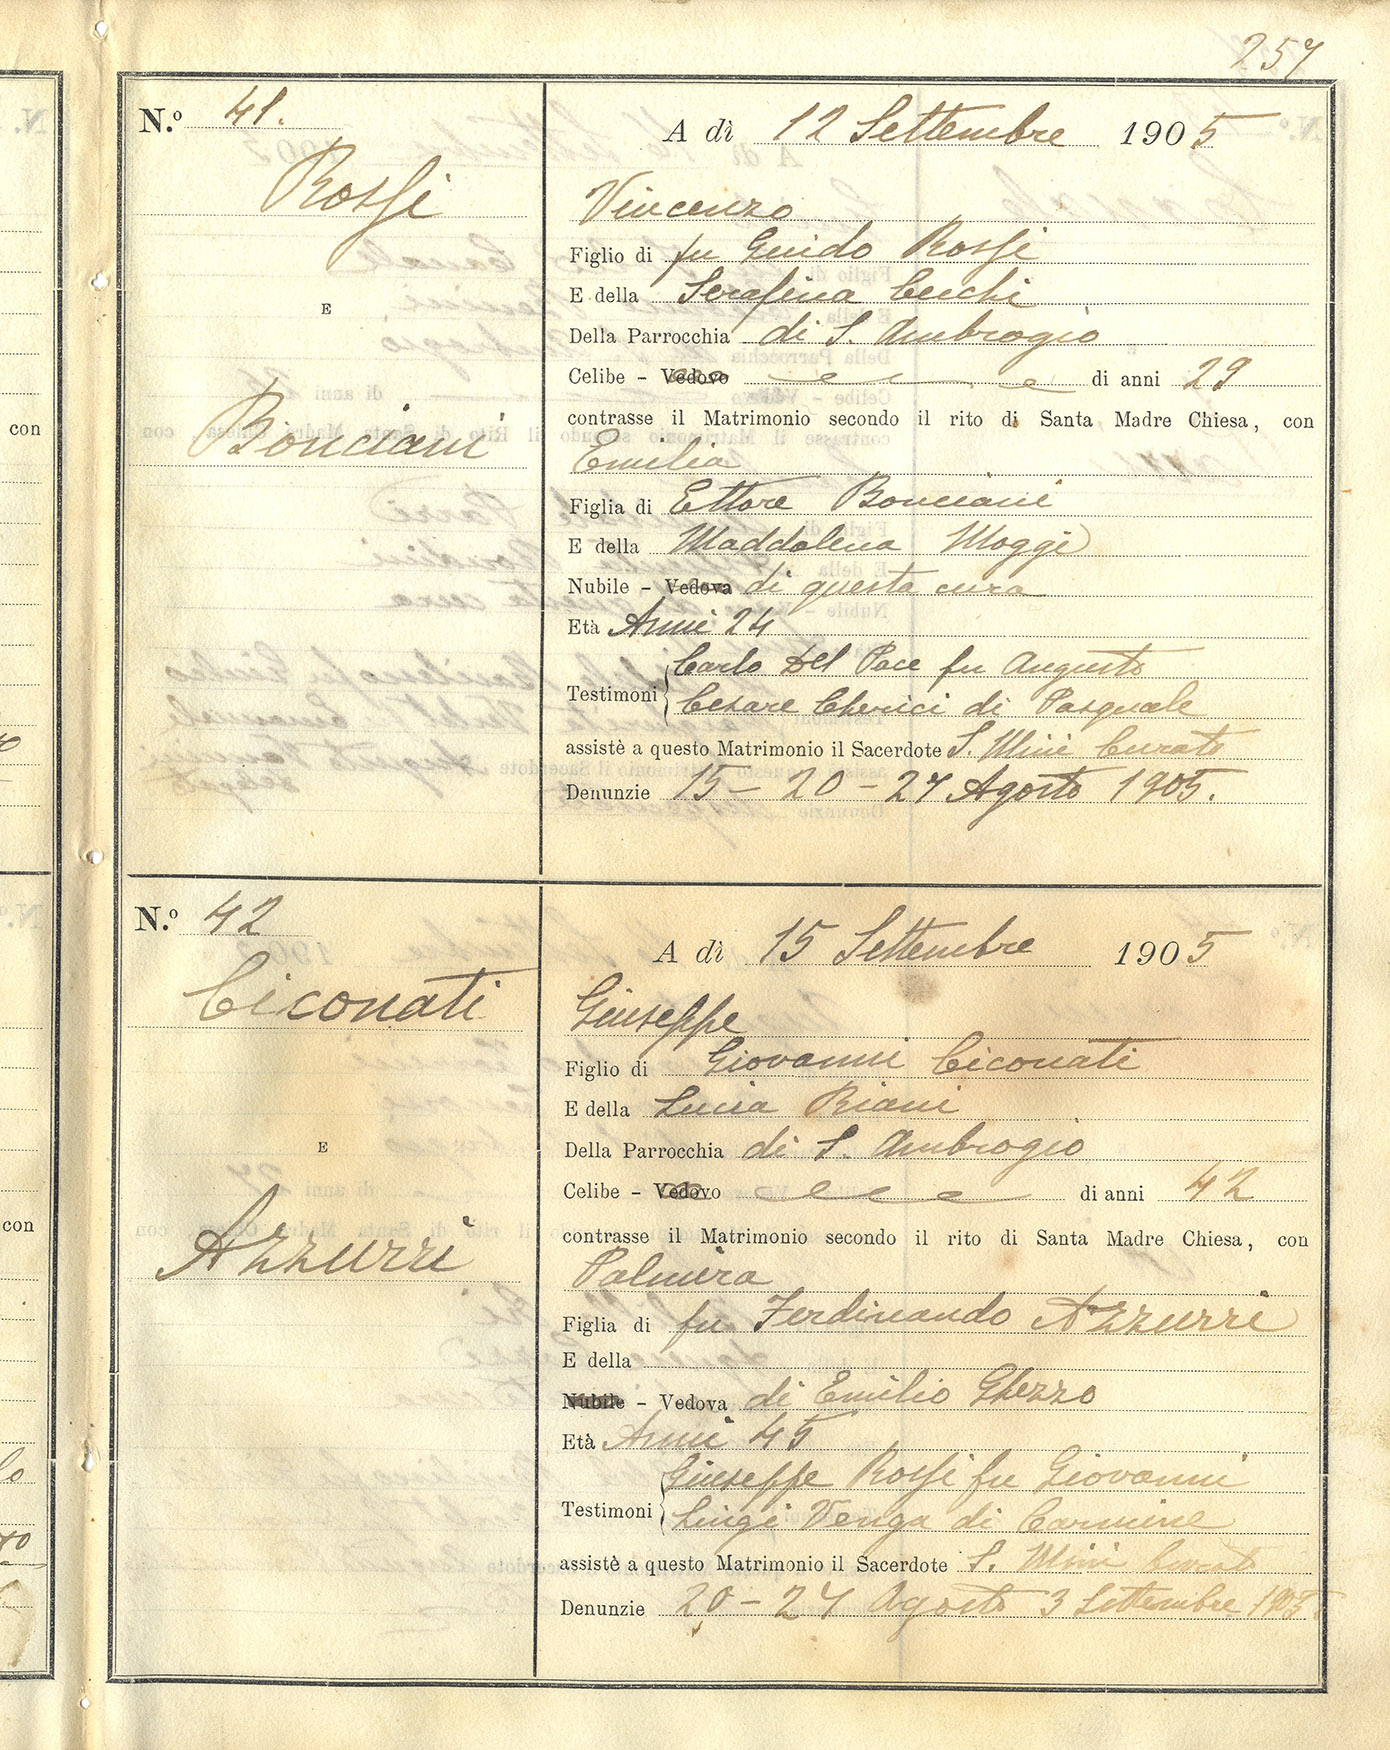 257
N.º 41.
Rossi
E
Bonciani
A dì 12 Settembre 1905
Vincenzo
Figlio di fu Guido Rossi
E della Serafina Cecchi
Della Parrocchia di S. Ambrogio
Celibe - Vedovo di anni 29
contrasse il Matrimonio secondo il rito di Santa Madre Chiesa, con
Emilia
Figlia di Ettore Bonciani
E della Maddalena Moggi
Nubile - Vedova di questa cura
Età Anni 24
Testimoni Carlo Del Pace fu Augusto
Cesare Cherici di Pasquale
assistè a questo Matrimonio il Sacerdote S. Mini Curato
Denunzie 15 - 20 - 27 Agosto 1905.
N.º 42
Ciconati
E
Azzurri
A dì 15 Settembre 1905
Giuseppe
Figlio di Giovanni Ciconati
E della Lucia Riani
Della Parrocchia di S. Ambrogio
Celibe - Vedovo di anni 42
contrasse il Matrimonio secondo il rito di Santa Madre Chiesa, con
Palmira
Figlia di fu Ferdinando Azzurri
E della
Nubile - Vedova di Emilio Ghezzo
Età Anni 45
Testimoni Giuseppe Rossi fu Giovanni
Luigi Venga di Carmine
assistè a questo Matrimonio il Sacerdote S. Mini Curato
Denunzie 20 - 27 Agosto 3 Settembre 1905.
con
con